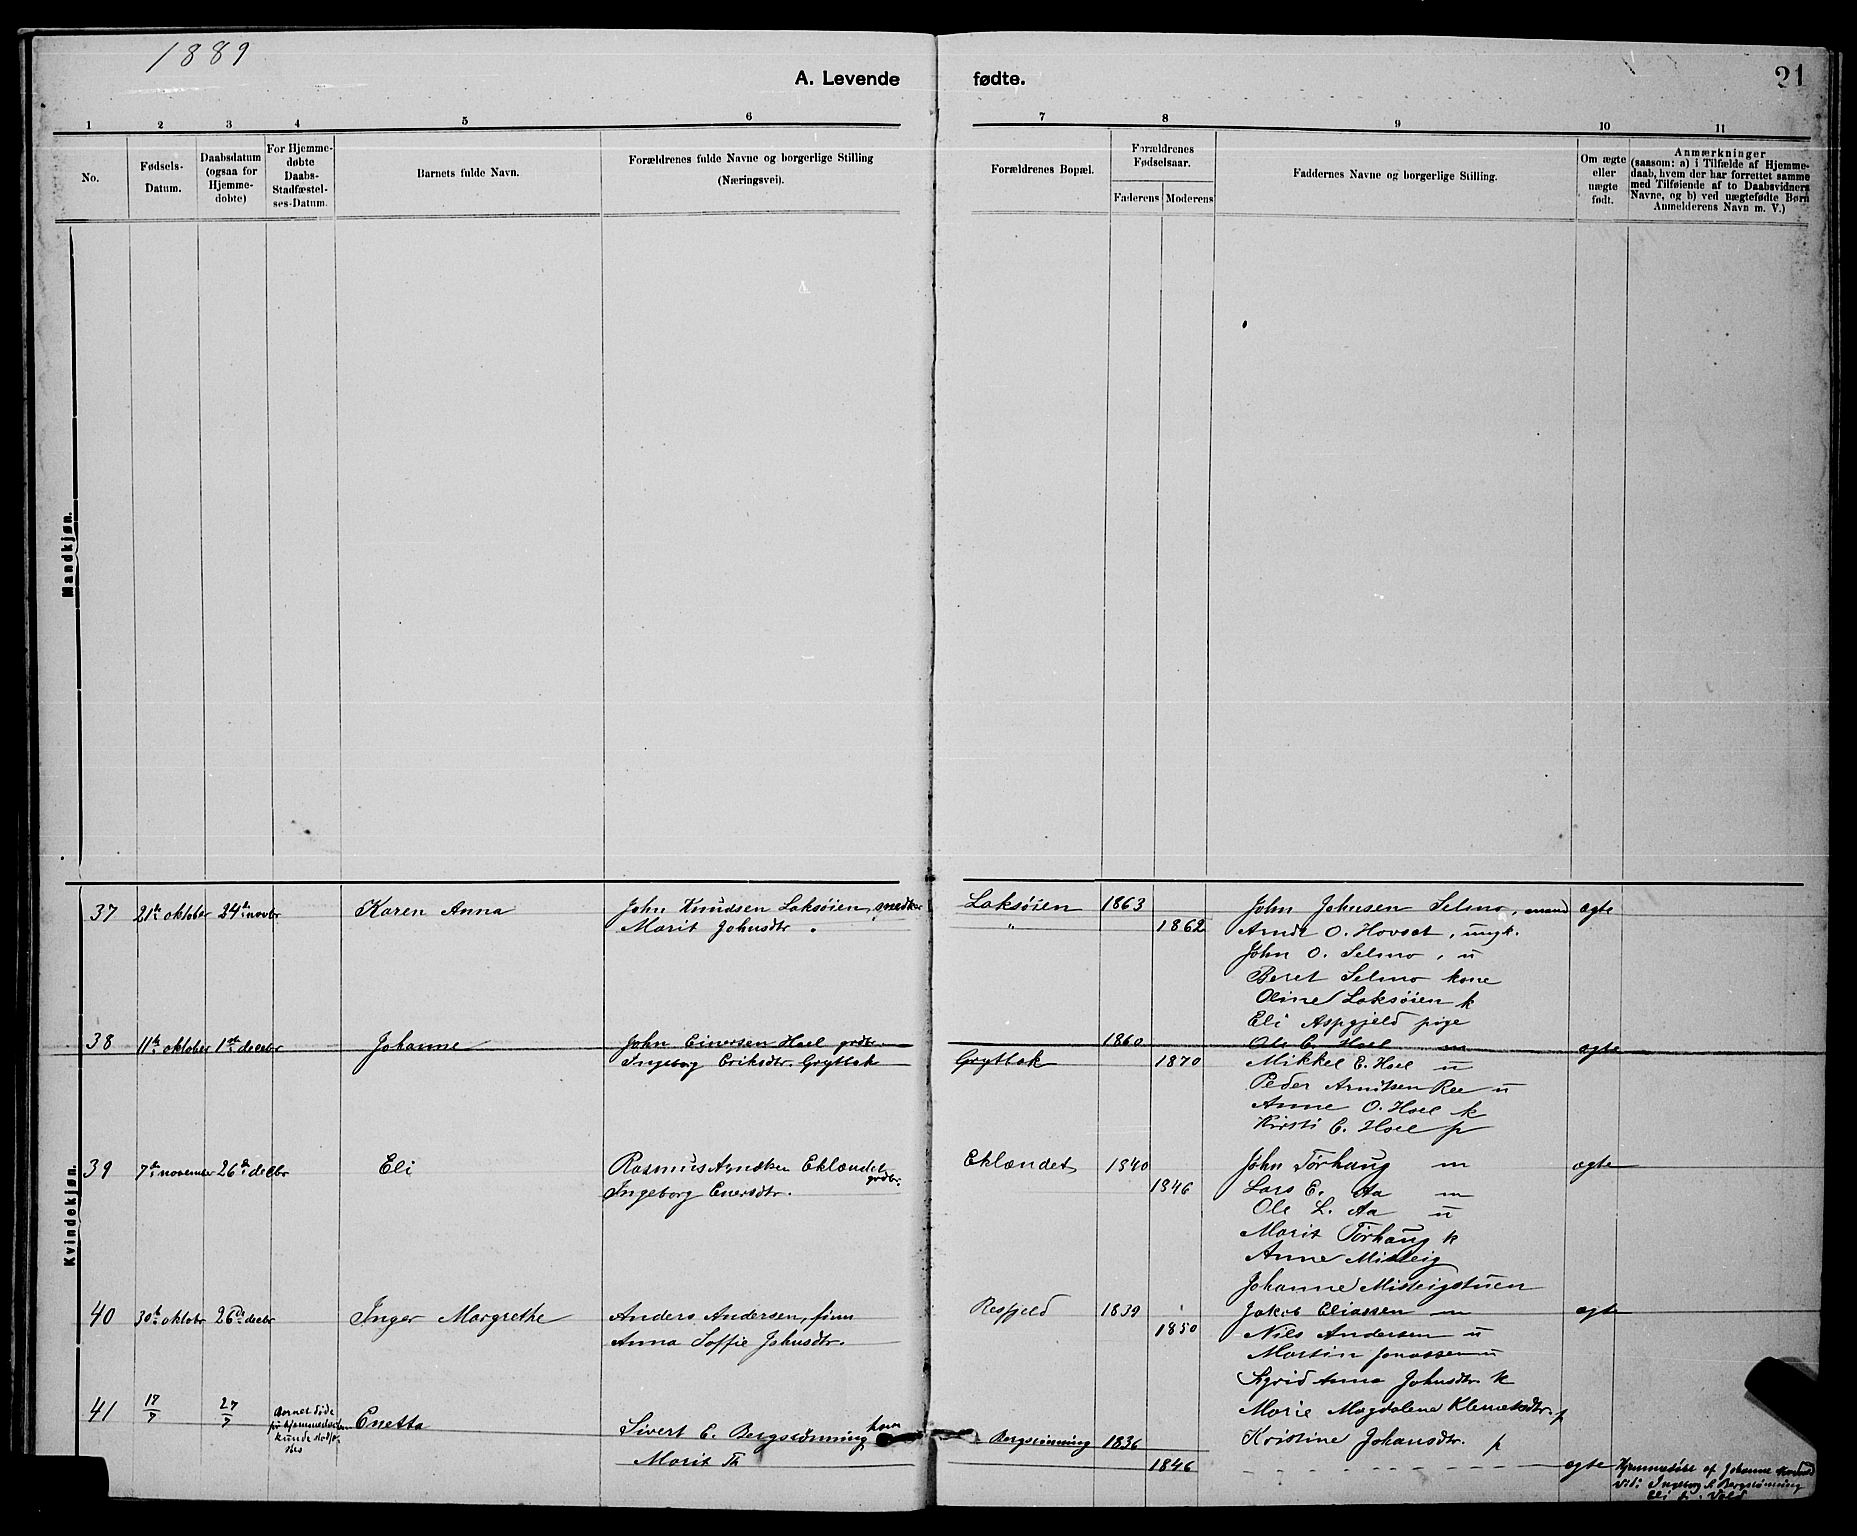 1889
A. Levende fødte.
21
1 2 3 4 5 6 7 8 9 10 11
No.
Fødsels-
Datum.
Daabsdatum
(ogsaa for
Hjemme-
døbte)
For Hjemme-
døbte
Daabs-
Stadfæstel-
ses-Datum.
Barnets fulde Navn.
Forældrenes fulde Navne og borgerlige Stilling
(Næringsvei).
Forældrenes Bopæl.
Forældrenes
Fødselsaar.
Faderens Moderens
Faddernes Navne og borgerlige Stilling.
Om ægte
eller
uægte
født.
Anmærkninger
(saasom: a) i Tilfælde af Hjemme-
daab, hvem der har forrettet samme
med Tilføiende af to Daabsvidners
Navne, og b) ved uægtefødte Børn
Anmelderens Navn m. V.)
Mandkjøn.
Kvindekjøn.
37 21de oktober 24de novbr Karen Anna John Knudsen Laksøien, smed Laksøien 1863 John Johnsen Selmo, mand ægte
Marit Johnsdtr. " 1862 Arndt O. Hovset, ungk.
John O. Selmo, u
Beret Selmo kone
Oline Laksøien k
Eli Aspgjeld pige
38 11te oktober 1ste decbr Johanne John Einersen Hoel grdbr. 1860 Ole E. Hoel m ægte
Ingeborg Eriksdtr. Grytbak Grytbak 1870 Mikkel E. Hoel u
Peder Arntsen Ree u
Anne O. Hoel k
Kirsti E. Hoel p
39 7de november 26de decbr Eli Rasmus Arndtsen Eklændet grdbr. Eklændet 1840 John Tørhaug m ægte
Ingeborg Enersdtr. 1846 Lars E. Aa m
Ole L. Aa u
Marit Tørhaug k
Anne Misteig
Johanne Misteigstuen
40 30te oktobr 26de decbr Inger Margrethe Anders Andersen, finn Resfjeld 1839 Jakob Eliassen m ægte
Anna Soffie Johnsdtr. 1850 Nils Andersen u
Martin Jonassen u
Sigrid Anna Johnsdtr. k
Marie Magdalene Klemetsdtr. p
Kristine Johansdtr. p
41 17/7 27/7 Barnet døde
før hjemmedaaben
kunde stadfæ-
stes
Enetta Sivert E. Bergsrønning Bergsrønning 1836
Marit 1846 ægte Hjemmedøbt af Johanne
Vid: Ingeborg S Bergsrønning